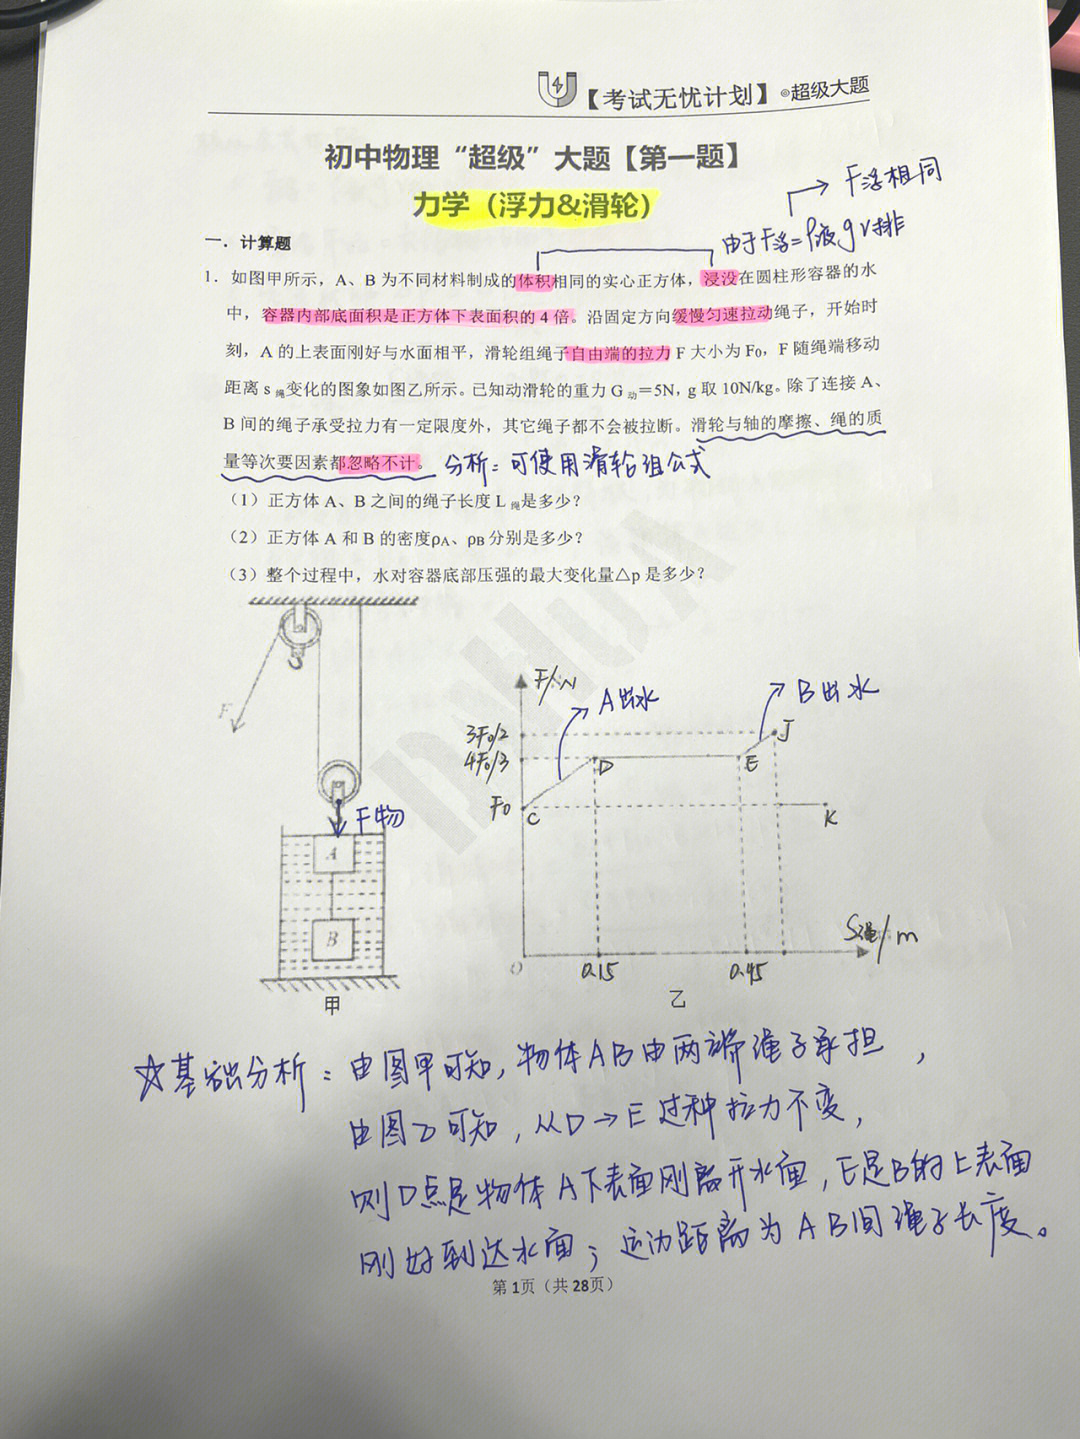 【考试无忧计划】◎超级大题
初中物理“超级”大题【第一题】
力学（浮力&滑轮）
F浮相同
由于F浮=ρ液gV排
一．计算题
1．如图甲所示，A、B 为不同材料制成的体积相同的实心正方体，浸没在圆柱形容器的水
中，容器内部底面积是正方体下表面积的 4 倍。沿固定方向缓慢匀速拉动绳子，开始时
刻，A 的上表面刚好与水面相平，滑轮组绳子自由端的拉力 F 大小为 F₀，F 随绳端移动
距离 s 绳变化的图象如图乙所示。已知动滑轮的重力 G 动＝5N，g 取 10N/kg。除了连接 A、
B 间的绳子承受拉力有一定限度外，其它绳子都不会被拉断。滑轮与轴的摩擦、绳的质
量等次要因素都忽略不计。 分析：可使用滑轮组公式
（1）正方体 A、B 之间的绳子长度 L 绳是多少？
（2）正方体 A 和 B 的密度ρA、ρB 分别是多少？
（3）整个过程中，水对容器底部压强的最大变化量△p 是多少？
F
F物
A
B
甲
F/N
A出水
B出水
3F₀/2
4F₀/3
F₀
C
D
E
J
K
S绳/m
O
0.15
0.45
乙
DAHUA
☆基础分析：由图甲可知，物体AB由两端绳子承担，
由图乙可知，从D→E过种拉力不变，
则D点是物体A下表面刚离开水面，E是B的上表面
刚好到达水面；运动距离为AB间绳子长度。
第 1页（共 28页）